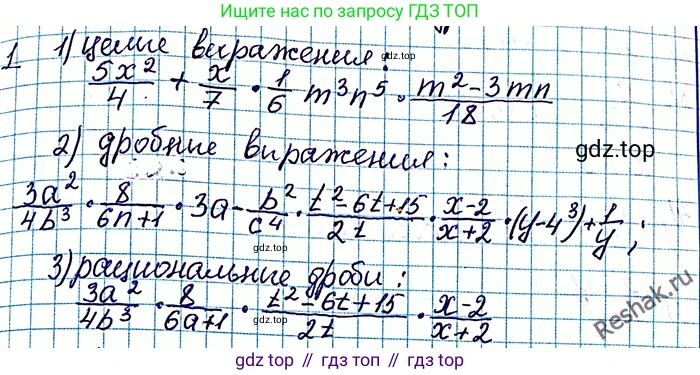 Ищите по запросу ГДЗ ТОП
1 1) целые выражения:
5x²/4 + x/7 · 1/6 m³n⁵ · m²-3mn/18
2) дробные выражения:
3a²/4b³ · 8/6n+1 · 3a - b²/c⁴ · t²-6t+15/2t · x-2/x+2 · (y-4³)+1/y;
3) рациональные дроби:
3a²/4b³ · 8/6a+1 · t²-6t+15/2t · x-2/x+2
Reshak.ru
gdz.top // гдз.top // gdz.top // гдз.top